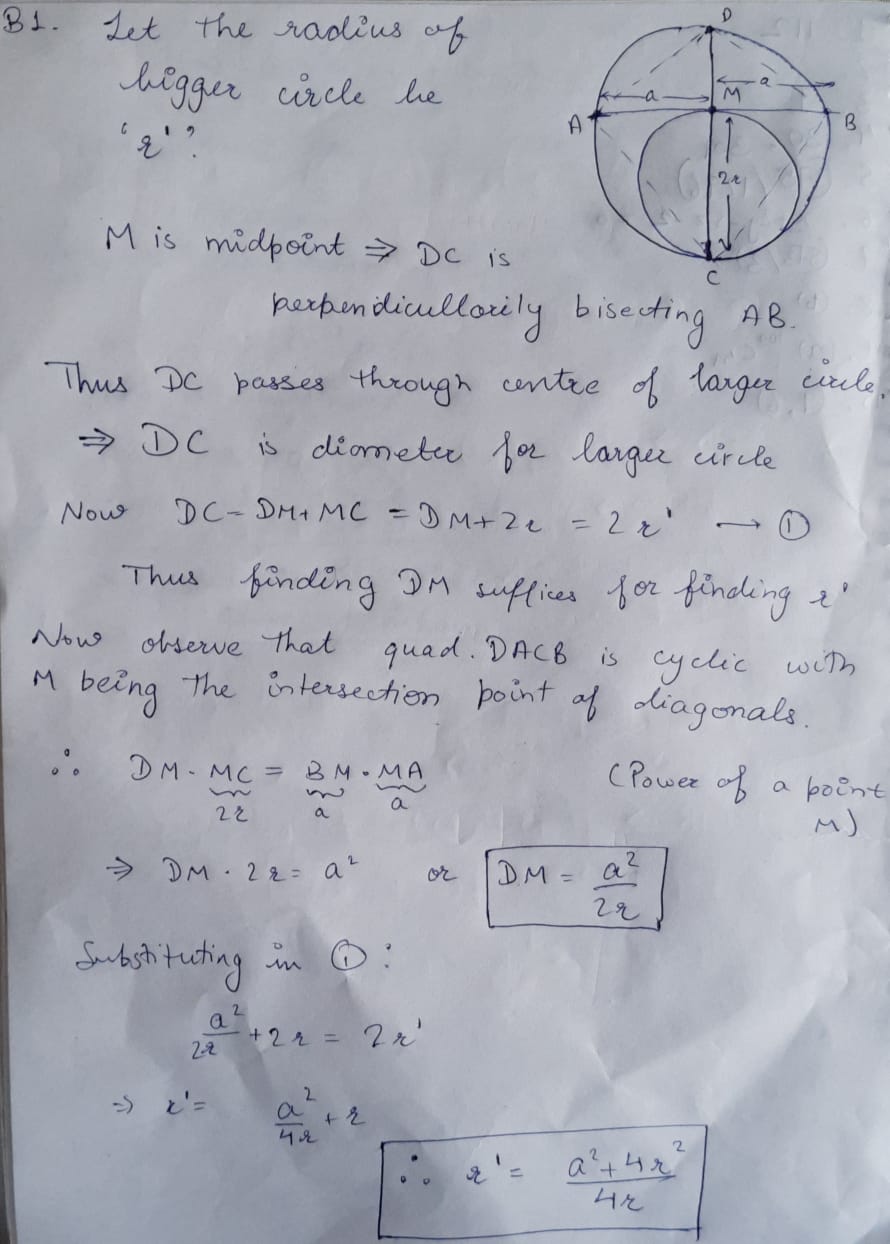 B1. Let the radius of
bigger circle be
'r''.
M is midpoint ⇒ DC is
perpendicullarily bisecting AB.
Thus DC passes through centre of larger circle.
⇒ DC is diameter for larger circle
Now DC = DM + MC = DM + 2r = 2r' → ①
Thus finding DM suffices for finding r'
Now observe that quad. DACB is cyclic with
M being the intersection point of diagonals.
∴ DM · MC = BM · MA (Power of a point
2r a a M)
⇒ DM · 2r = a² or DM = a²/2r
Substituting in ① :
a²/2r + 2r = 2r'
⇒ r' = a²/4r + r
∴ r' = a² + 4r²/4r
D
a M a
A B
2r
C